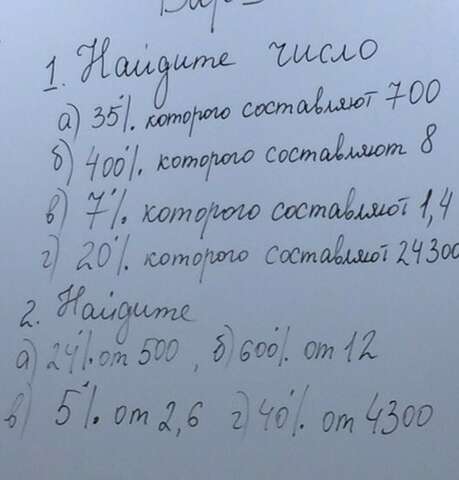 1. Найдите число
а) 35% которого составляют 700
б) 400% которого составляют 8
в) 7% которого составляют 1,4
г) 20% которого составляют 24300
2. Найдите
а) 24% от 500, б) 600% от 12
в) 5% от 2,6 г) 40% от 4300